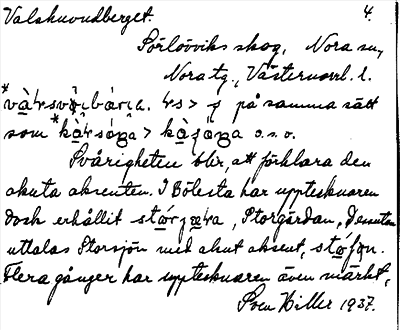 Valshuvudberget. 4.
Sörlövviks skog, Nora sn,
Nora tg., Västernorrl. l.
på samma sätt
som o.s.v.
Svårigheten blir, att förklara den
akuta aksenten. I Bölesta har uppteknaren
dock erhållit Storgärdan, Dessutom
uttalas Storsjön med akut aksent,
Flera gånger har uppteknaren även märkt,
Sven Hiller 1937.